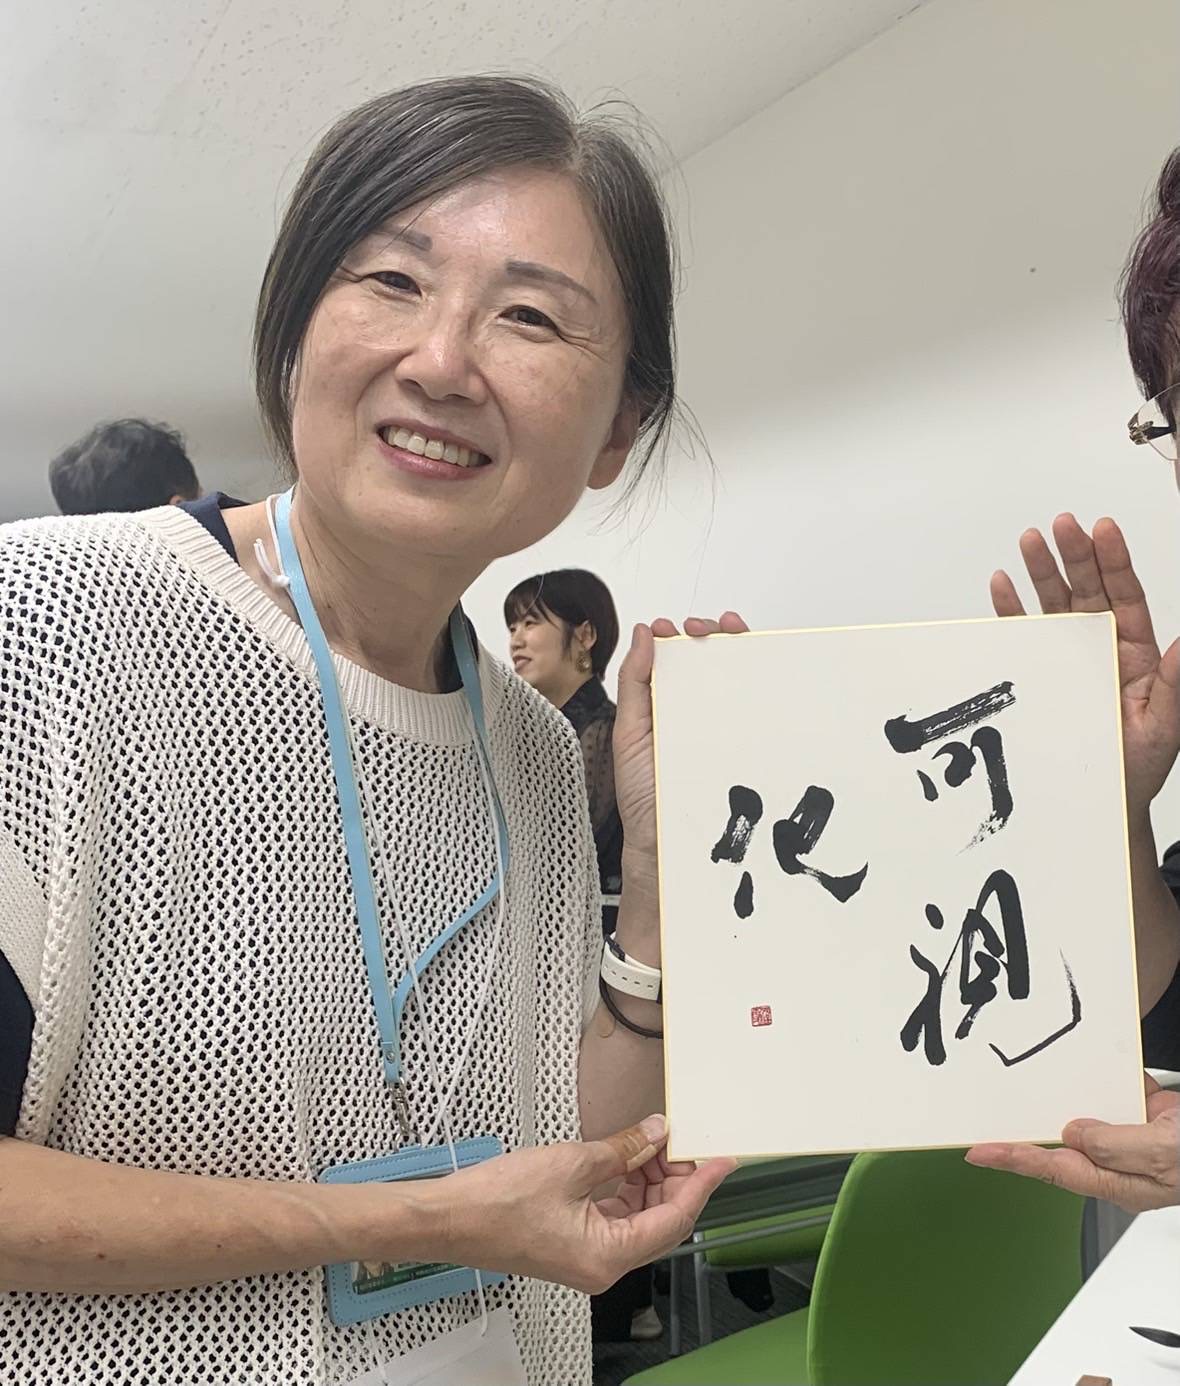 可視
化